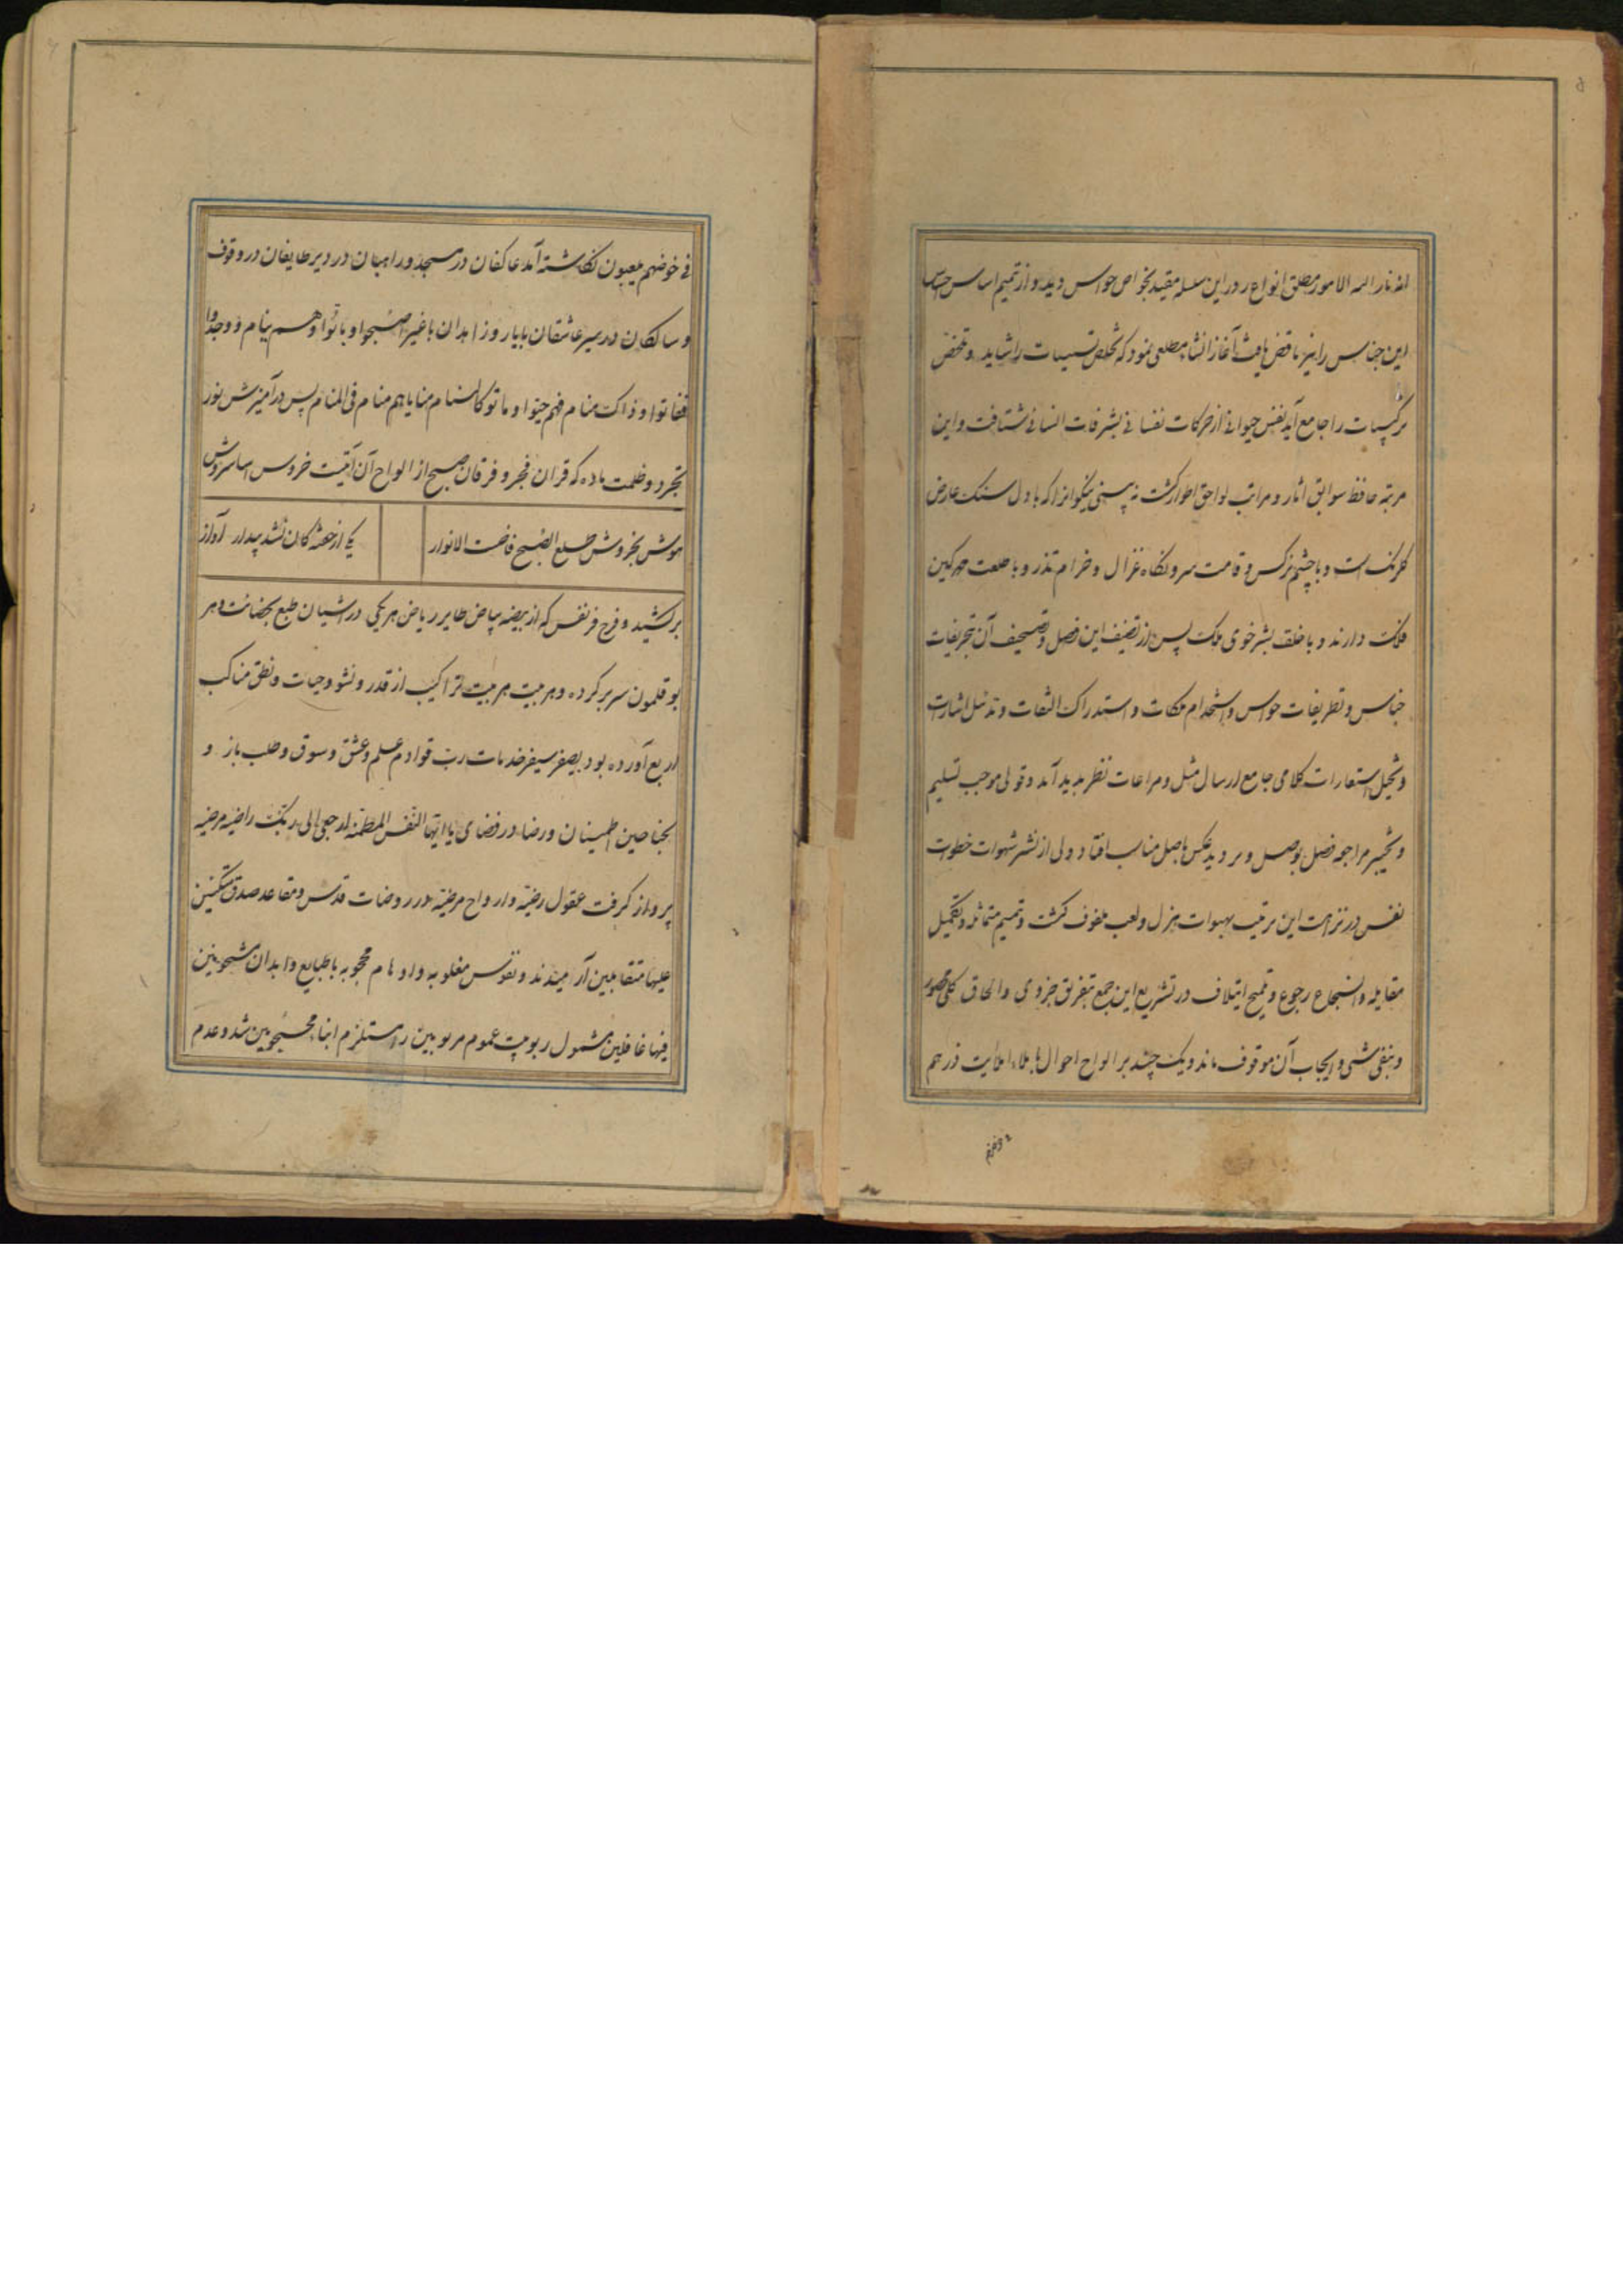 الامور مطلق انواع در این سلسله مقید بخواص حواس دید و از تمیم اساس جناس
این جناس را نیز ناقص یافت آغاز انشا مطلعی نمود که تخلص تسبیبات را شاید و تلخص
ترکیبات را جامع آید نفس حیوانی از حرکات نفسانی بشرفات انسانی شتافت و این
مرتبه حافظ سوابق اثار و مراتب لواحق اطوار گشت نه بینی نیکوانرا که با دل سنک عارض
گلرنک است و با چشم نرکس و قامت سرو نگاه غزال و خرام تذرو و با طلعت مهر کین
فلک دارند و با خلقت بشر خوی ملک پس از تضیف این فصل و تصحیف آن تجریفات
جناس و تطریفات حواس و استخدام ملکات و استدراک التفات و تدخل اشارات
و تخیل استعارات کلامی جامع ارسال مثل و مراعات نظیر پدید آمد و قولی موجب تسلیم
مراجعه فصل بوصل و عکس باصل مناسب افتاد ولی از نشر شهوات خطوات
نفس در نزاهت این ترتیب بهبوات هزل و لعب ملفوف گشت و تمیم متماثله و تکمیل
مقابله و انسجاع رجوع و تلمیح ایتلاف در تشریع این جمع تفریق جزوی و الحاق کلی محصور
و بنفی شی و ایجاب آن موقوف ماند و یک چند بر الواح احوال باملاء املایت ذرهم
فی خوضهم یلعبون نگاشته آمد عاکفان در مسجد و راهبان در دیر طایفان در وقوف
و سالکان در سیر عاشقان با یار و زاهدان با غیر اصبحوا و باتوا و هم نیام و وجدوا
ففاتوا و ذاک منام فهم حیوا و ماتو کالسنام منایاهم منام فی المنام پس در آمیزش نور
تجرد و ظلمت ماده که قران فجر و فرقان صبح از الواح آن آیتیست خروس اسا سروش
هوش بخروش طلع الصبح فاضت الانوار یکی از خفتگان نشد بیدار آواز
برکشید و فرخ فر نفس که از بیضه بیاض طایر ریاض هر یکی در آشیان طبع بحضانت دهر
بوقلمون سر بر کرده و هر بیت هر بیت تراکیب از قدر و نشو و حیات و نطق مناکب
اربع آورده بود بصفر سیفر خدمات رب قوادم علم و عشق و سوق و طلب باز و
بجناحین اطمینان و رضا در فضای یا ایتها النفس المطمئنه ارجعی الی ربک راضیه مرضیه
پرواز گرفت عقول رضیه و ارواح مرضیه در روضات قدس و مقاعد صدق متکئین
علیها متقابلین آرمیدند و نفوس مغلوبه و اوهام محجوبه با طبایع و ابدان مشحونین
فیها غافلین شمول ربوبیت عموم مربوبین را مستلزم ابناء محتجوبین شد و عدم